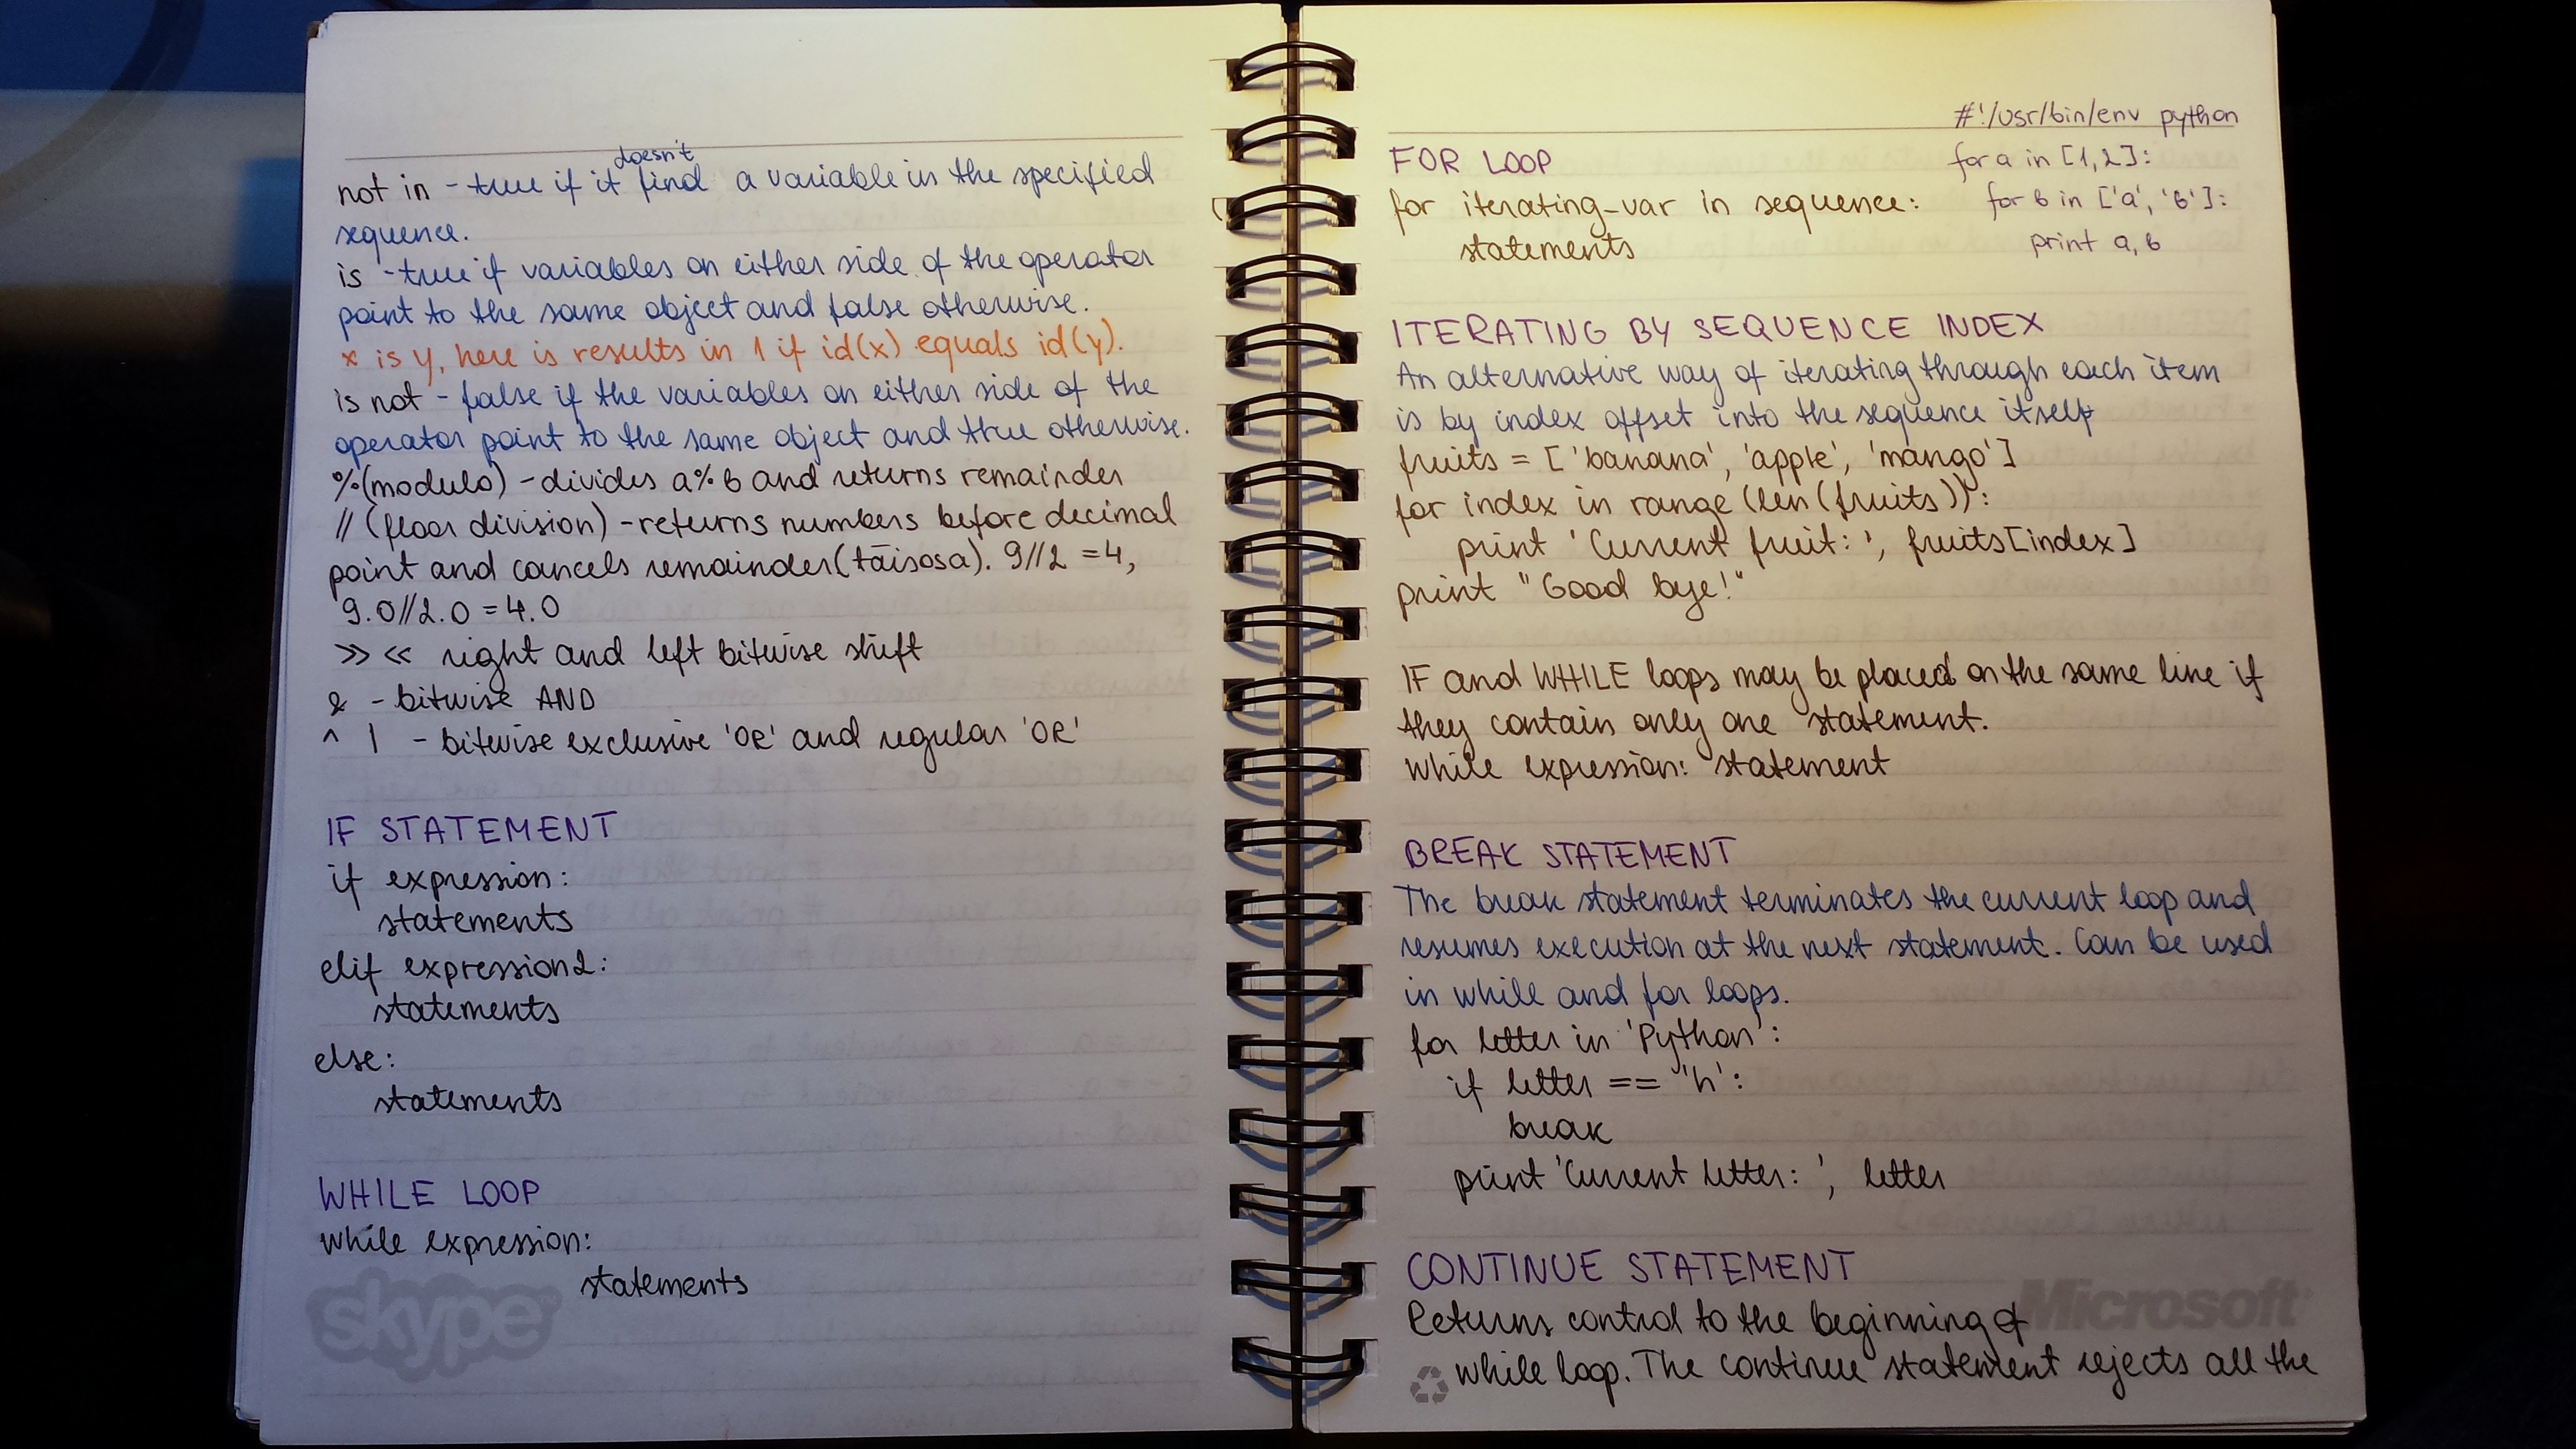 not in - true if it doesn't find a variable in the specified
sequence.
is - true if variables on either side of the operator
point to the same object and false otherwise.
x is y, here is results in 1 if id(x) equals id(y).
is not - false if the variables on either side of the
operator point to the same object and true otherwise.
%(modulo) - divides a%b and returns remainder
// (floor division) - returns numbers before decimal
point and cancels remainder(täisosa). 9//2 = 4,
9.0//2.0 = 4.0
>> << right and left bitwise shift
& - bitwise AND
^ | - bitwise exclusive 'OR' and regular 'OR'
IF STATEMENT
if expression:
statements
elif expression2:
statements
else:
statements
WHILE LOOP
while expression:
statements
skype
#!/usr/bin/env python
for a in [1,2]:
for b in ['a', 'b']:
print a, b
FOR LOOP
for iterating-var in sequence:
statements
ITERATING BY SEQUENCE INDEX
An alternative way of iterating through each item
is by index offset into the sequence itself
fruits = ['banana', 'apple', 'mango']
for index in range (len(fruits)):
print 'Current fruit: ', fruits[index]
print "Good bye!"
IF and WHILE loops may be placed on the same line if
they contain only one statement.
while expression: statement
BREAK STATEMENT
The break statement terminates the current loop and
resumes execution at the next statement. Can be used
in while and for loops.
for letter in 'Python':
if letter == 'h':
break
print 'Current letter: ', letter
CONTINUE STATEMENT
Returns control to the beginning of
while loop. The continue statement rejects all the
Microsoft